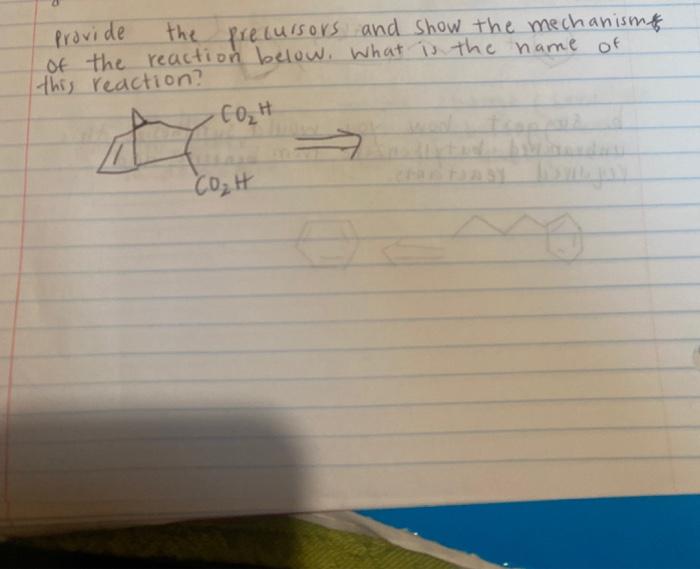 provide the precursors and show the mechanism
of the reaction below. What is the name of
this reaction?
CO₂H
CO₂H